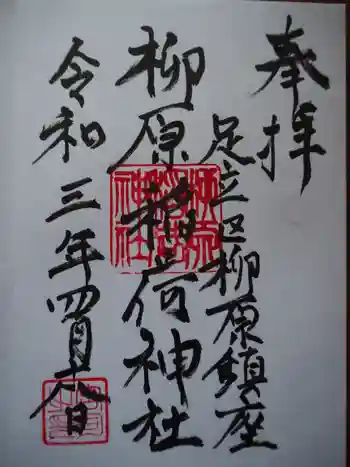 奉拝
足立区柳原鎮座
柳原稲荷神社
令和三年四月六日